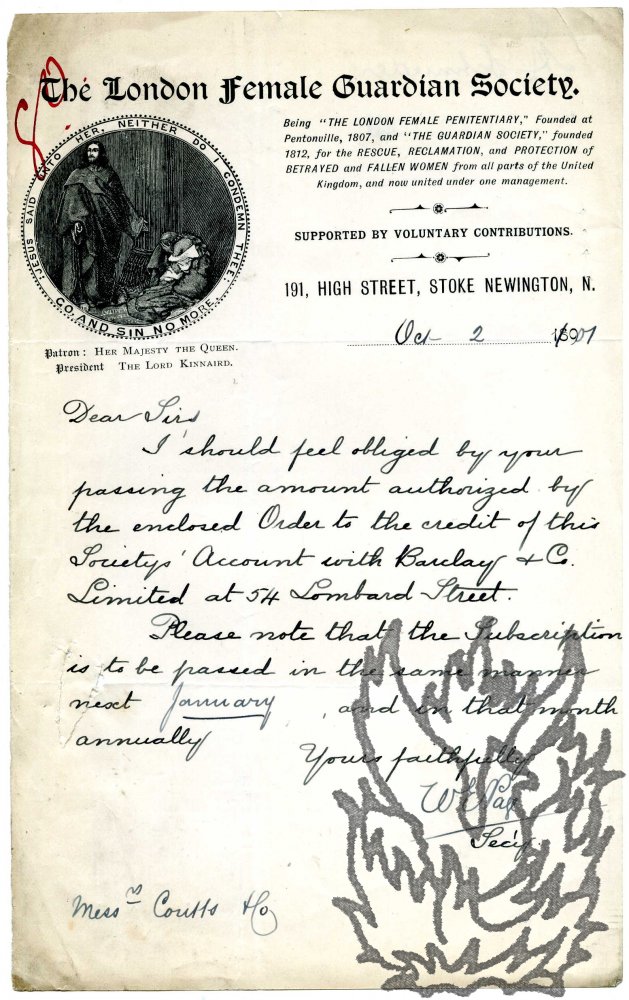 The London Female Guardian Society.
Being "THE LONDON FEMALE PENITENTIARY," Founded at
Pentonville, 1807, and "THE GUARDIAN SOCIETY," founded
1812, for the RESCUE, RECLAMATION, and PROTECTION of
BETRAYED and FALLEN WOMEN from all parts of the United
Kingdom, and now united under one management.
SUPPORTED BY VOLUNTARY CONTRIBUTIONS.
191, HIGH STREET, STOKE NEWINGTON, N.
JESUS SAID UNTO HER, NEITHER DO I CONDEMN THEE,
GO, AND SIN NO MORE.
Oct 2 1901
Patron: HER MAJESTY THE QUEEN.
President THE LORD KINNAIRD.
Dear Sirs
I should feel obliged by your
passing the amount authorized by
the enclosed Order to the credit of this
Societys' Account with Barclay & Co.
Limited at 54 Lombard Street.
Please note that the Subscription
is to be passed in the same manner
next January, and in that month
annually
Yours faithfully
Secy.
Messrs Coutts & Co